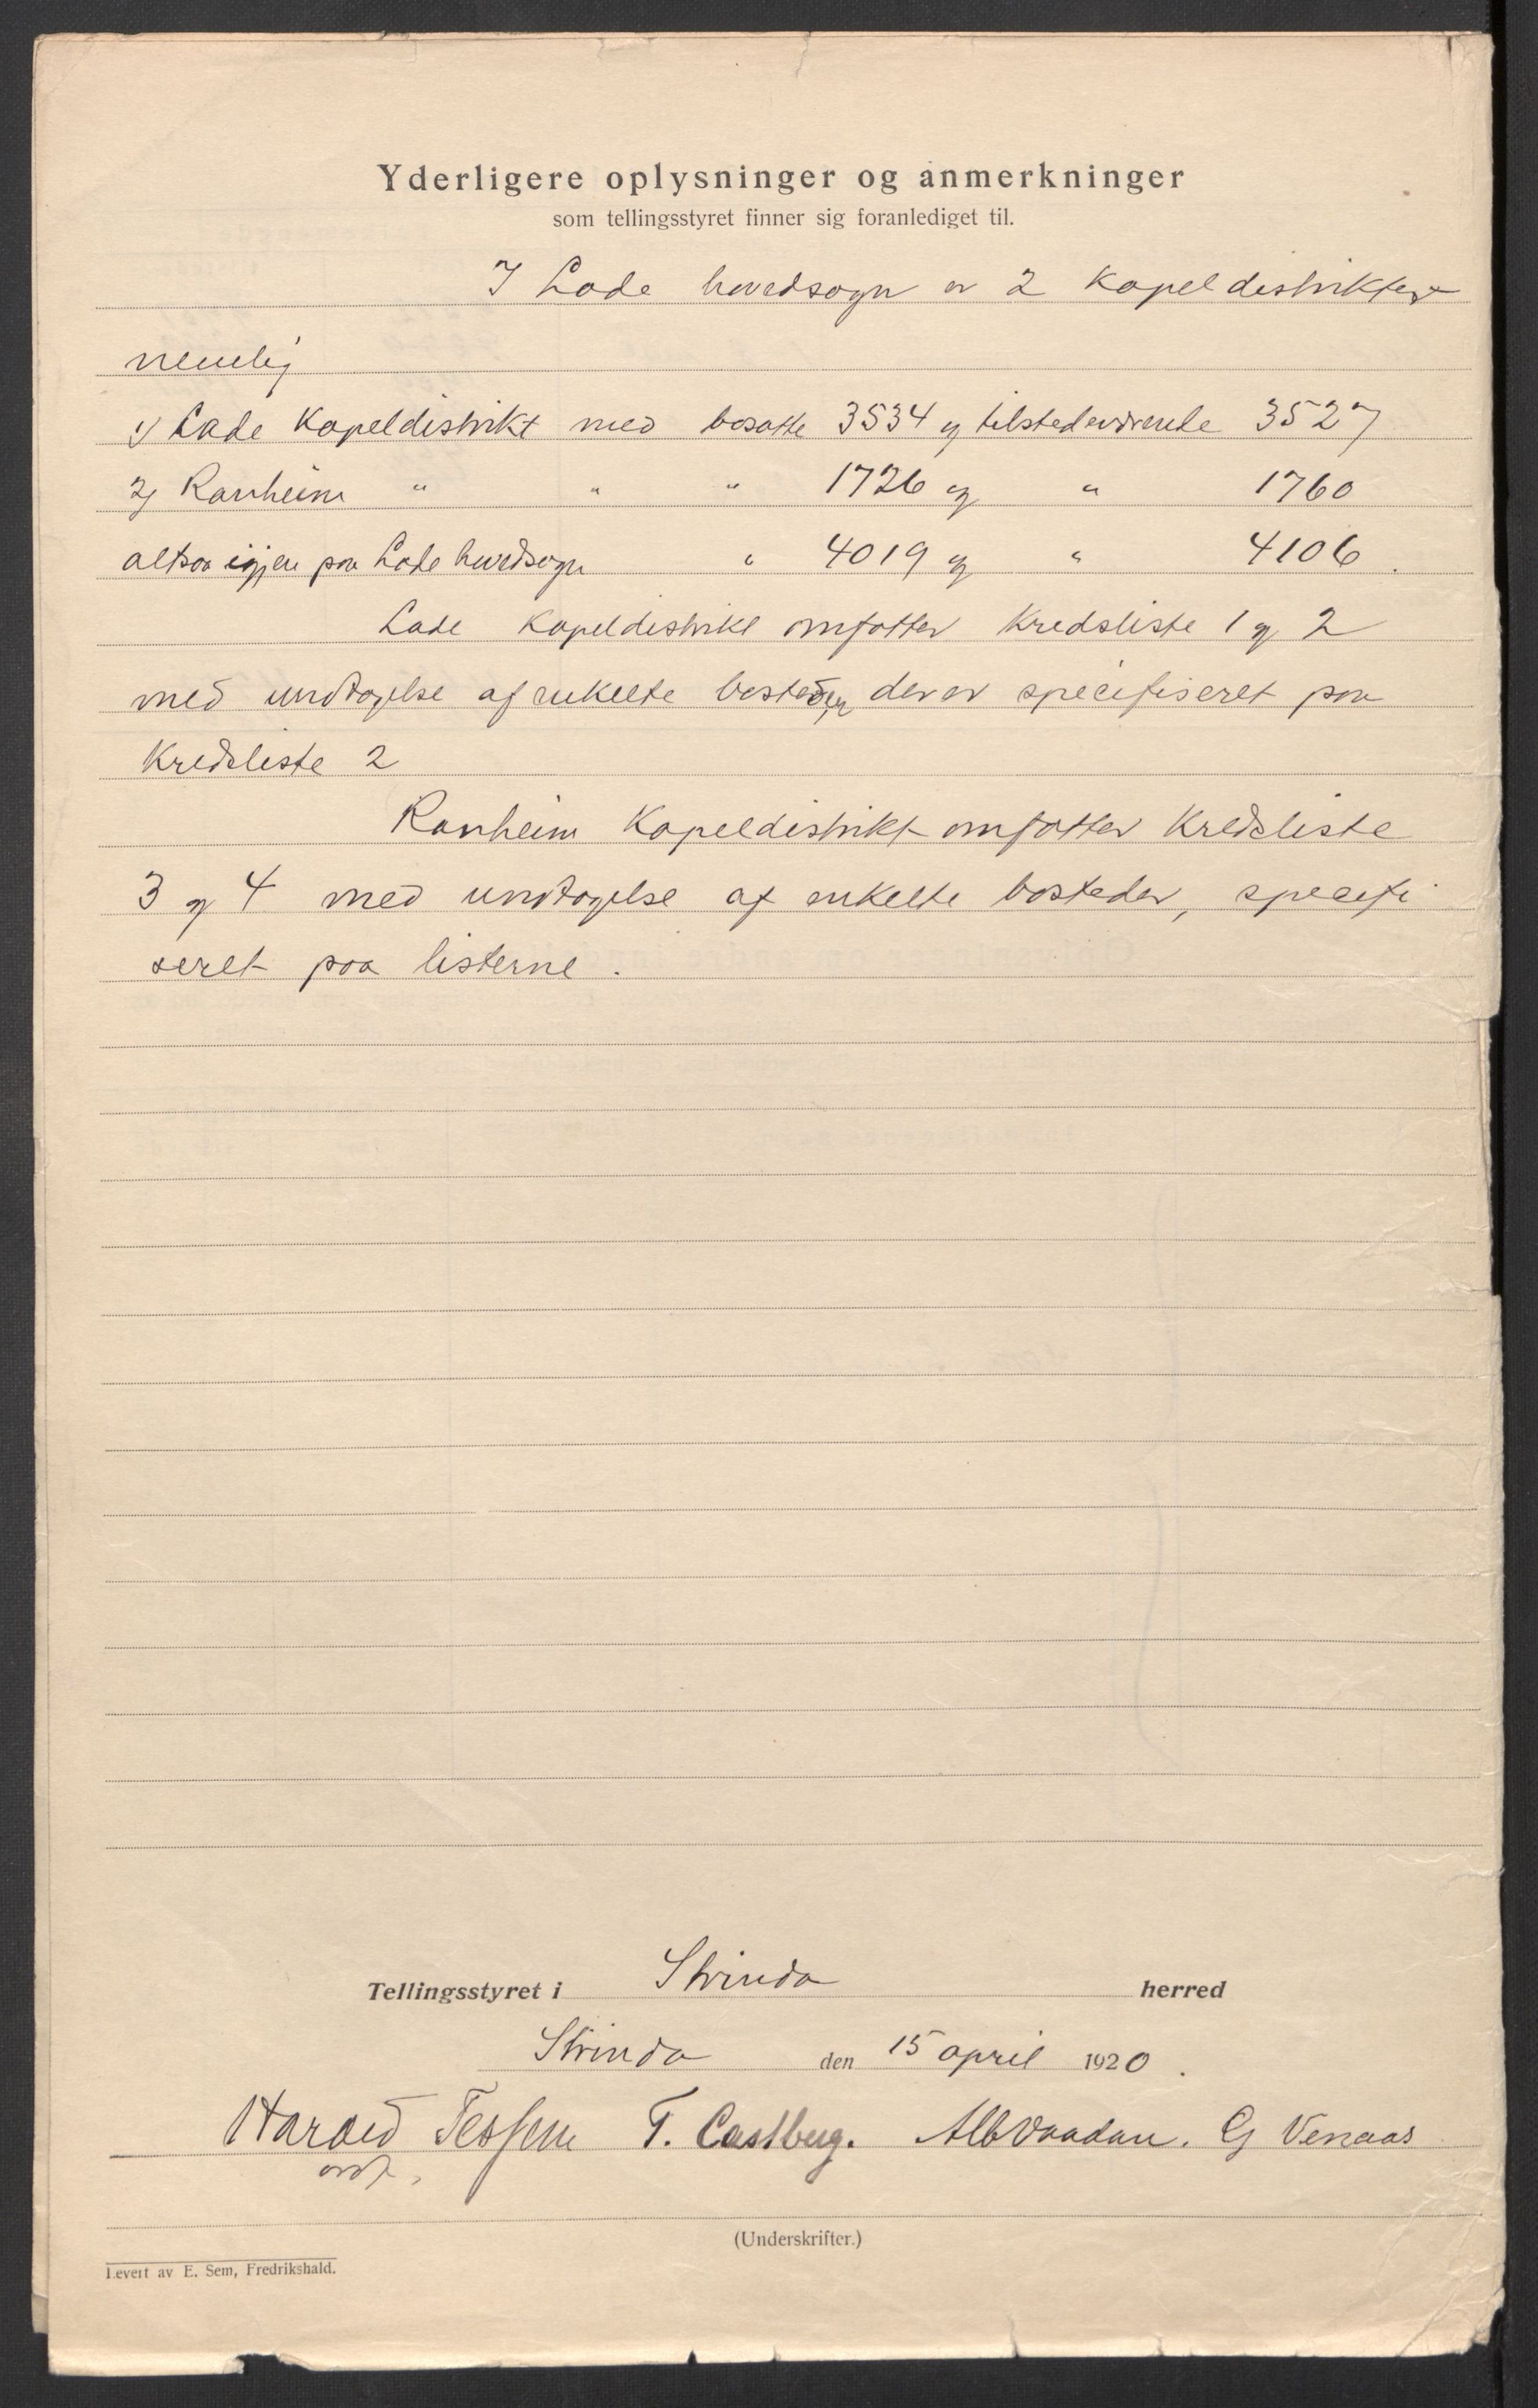 Yderligere oplysninger og anmerkninger
som tellingsstyret finner sig foranlediget til.
I Lade hovedsogn er 2 Kapeldistrikter
nemlig
1) Lade Kapeldistrikt med bosatte 3534 og tilstedeværende 3527
2) Ranheim " " " 1726 og " 1760
altsaa igjen paa Lade hovedsogn " 4019 og " 4106.
Lade Kapeldistrikt omfatter Kredsliste 1 og 2
med undtagelse af enkelte bosteder, der er specifiseret paa
Kredsliste 2
Ranheim Kapeldistrikt omfatter Kredsliste
3 og 4 med undtagelse af enkelte bosteder, specifi
seret paa listerne.
Tellingsstyret i Strinda herred
Strinda den 15 april 1920.
Harald Tessem T. Castberg. Alb Vaadan. G Venaas
ordf.
(Underskrifter.)
Levert av E. Sem, Fredrikshald.